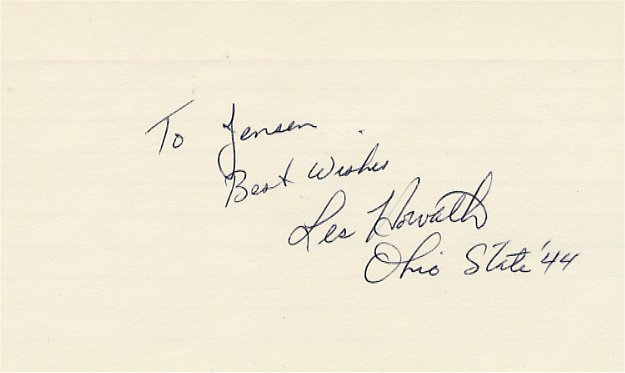 To Jensen
Best Wishes
Les Horvath
Ohio State '44